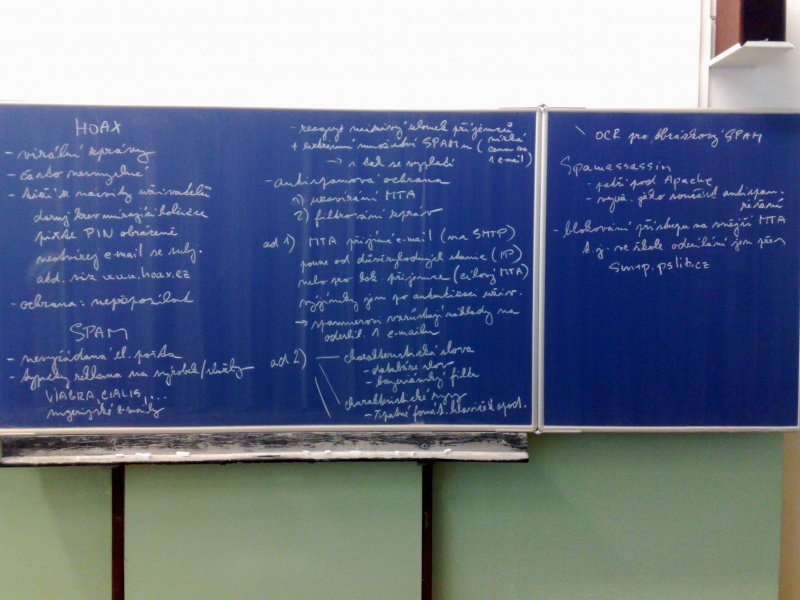 HOAX
- virální zprávy
- často nesmyslné
- těží z naivity uživatelů
daruj krev umírajícímu holčičce
pište PIN obráceně
neotvírej e-mail se subj.
atd. viz www.hoax.cz
- ochrana: nepřeposílat
SPAM
- nevyžádaná el. pošta
- typicky reklama na výrobek/služby
VIAGRA, CIALIS...
nigerijské e-maily
- reaguje nepatrný zlomek příjemců
+ extrémní množství SPAMu (nízká cena za 1 e-mail)
→ i tak se vyplatí
- antispamová ochrana
1) uzavírání MTA
2) filtrování zpráv
ad 1) MTA přijímá e-mail (via SMTP)
pouze od důvěryhodných stanic (IP)
nebo pro lok. příjemce (cílový MTA)
výjimky jen po autentizaci uživ.
→ spammerovi vzrůstají náklady na
odesíl. 1 e-mailu
ad 2) — charakteristická slova
- databáze slov
- bayesiánský filtr
charakteristické rysy
- špatné formát. hlaviček apod.
\ OCR pro obrázkový SPAM
Spamassassin
- patří pod Apache
- využ. jako součást antispam.
řešení
- blokování přístupu na vnější MTA
t.j. ve škole odesílání jen přes
smtp.pslib.cz